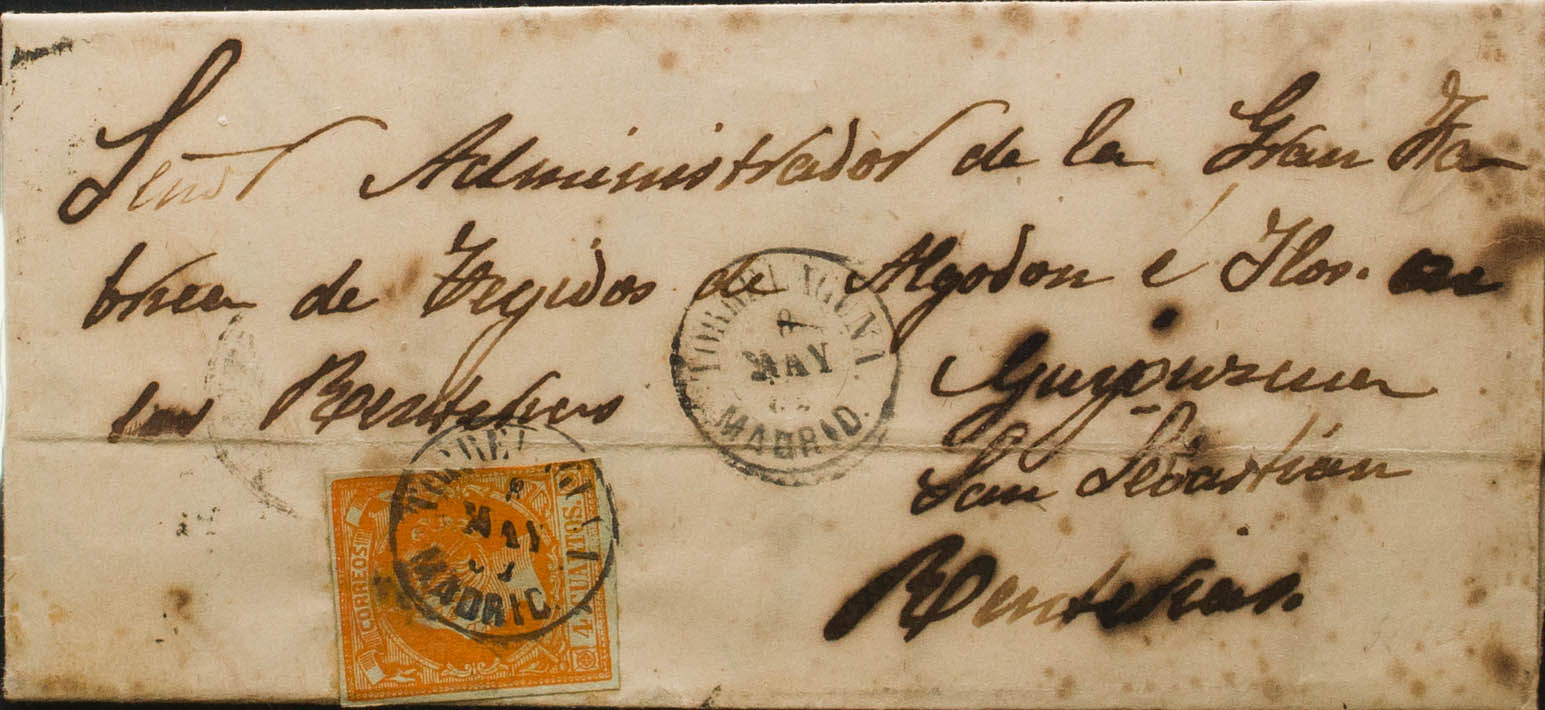 Señor Administrador de la Gran Fa-
brica de Tegidos de Algodon é Ilos. en
Renterias
Guipuzcua
San Sebastián
Renterias.
TORRELAGUNA
8
MAY
MADRID.
TORRELAGUNA
8
MAY
MADRID
CORREOS
4 CUARTOS